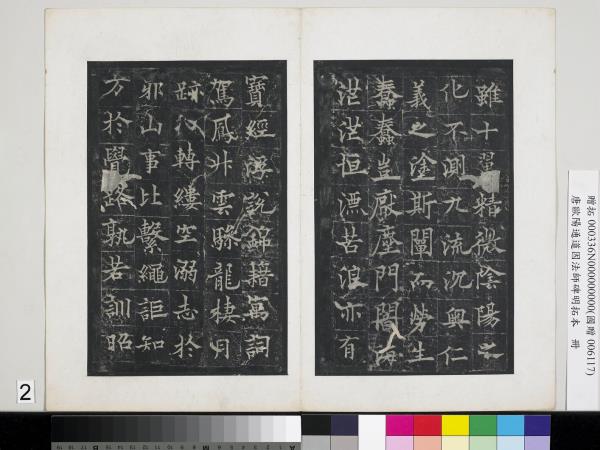 雖十翼精微陰陽之
化不測九流沉奧仁
義之塗斯闡而勞生
蠢蠢豈厭塵門闇海
茫茫恒漂苦浪亦有
寶經浮說錦籍寓詞
駕鳳升雲驂龍棲月
跡均轉縷空溺志於
邪山事比繫繩詎知
方於覺路孰若訓昭
贈拓 000336N000000000(國贈 006117)
唐歐陽通道因法師碑明拓本 冊
2